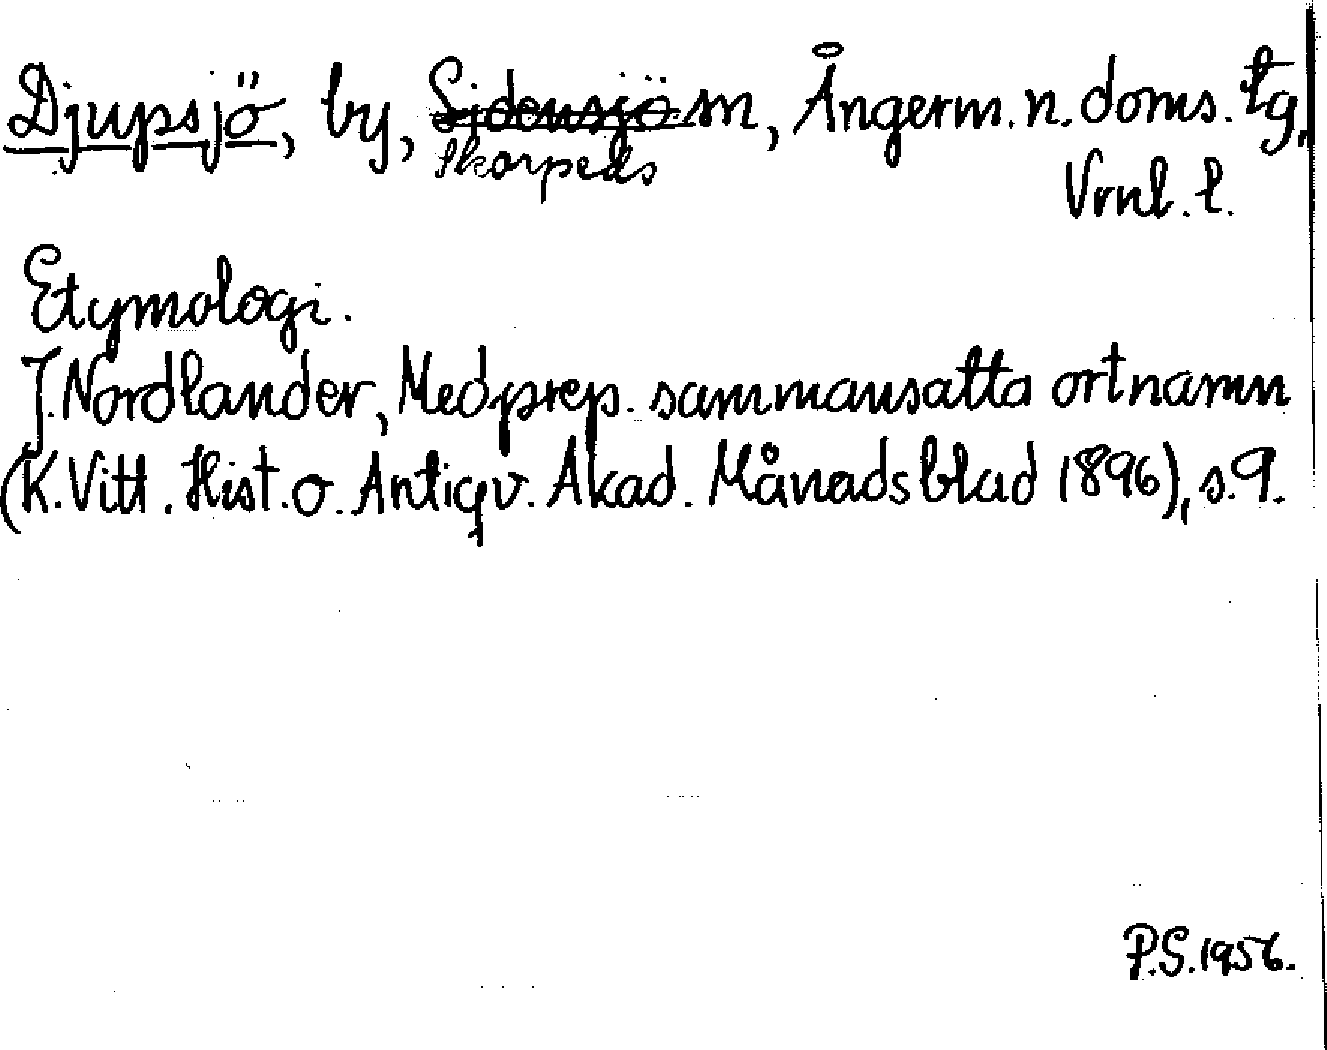 Djupsjö, by, Sidensjö sn, Ångerm. n. doms. tg,
Skorpeds
Vrnl. l.
Etymologi.
J. Nordlander, Medprep. sammansatta ortnamn
(K. Vitt. Hist. o. Antiqv. Akad. Månadsblad 1896), s. 9.
P.S. 1956.